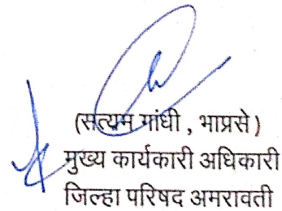 (सत्यम गांधी , भाप्रसे )
मुख्य कार्यकारी अधिकारी
जिल्हा परिषद अमरावती